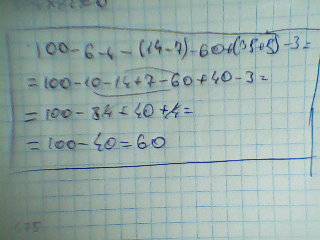 100-6-4-(14-7)-60+(35+5)-3=
=100-10-14+7-60+40-3=
=100-84=40+4=
=100-40=60